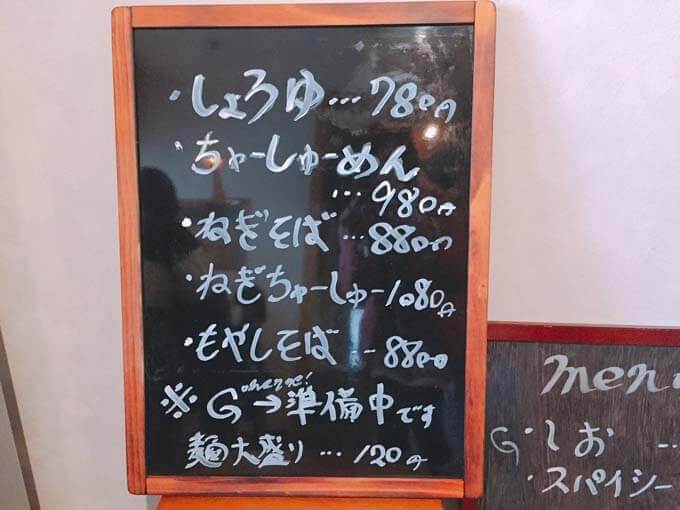 ・しょうゆ…780円
・ちゃーしゅーめん
…980円
・ねぎそば…880円
・ねぎちゃーしゅー1080円
・もやしそば…880円
※G→準備中です
麺大盛り…120円
menu
G・しお…
・スパイシー